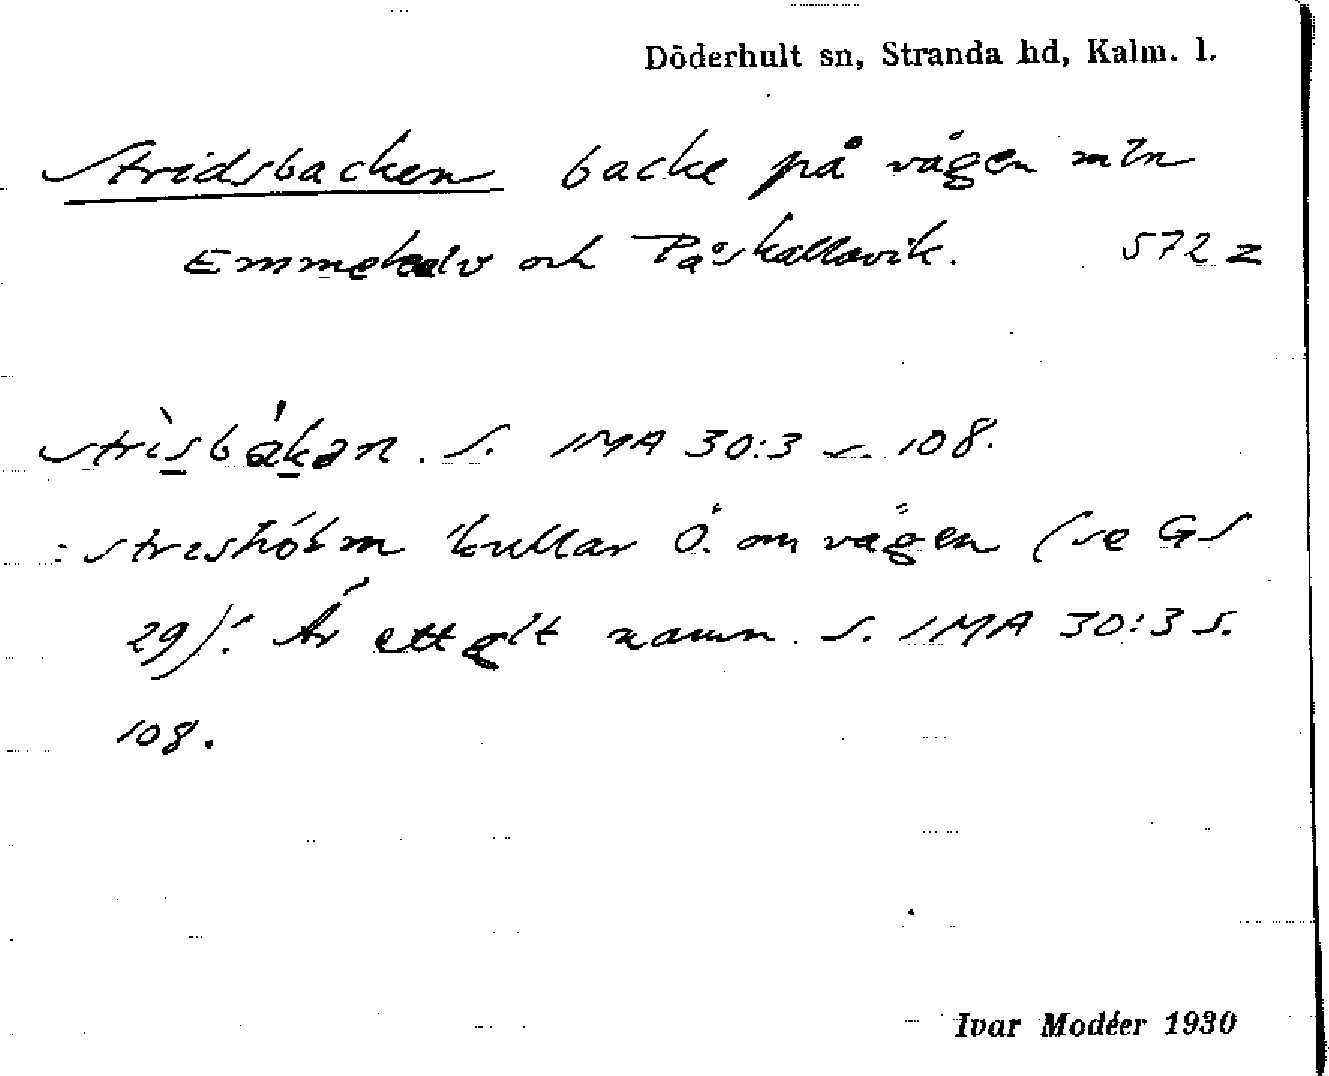 Döderhult sn, Stranda hd, Kalm. l.
Stridsbacken backe på vägen mln
Emmekalv och Påskallavik. 572 z
strìsbákan. S. IMA 30:3 s. 108.
: kullar Ö. om vägen (se GS
29): Är ett glt namn. S. IMA 30:3 s.
108.
Ivar Modéer 1930